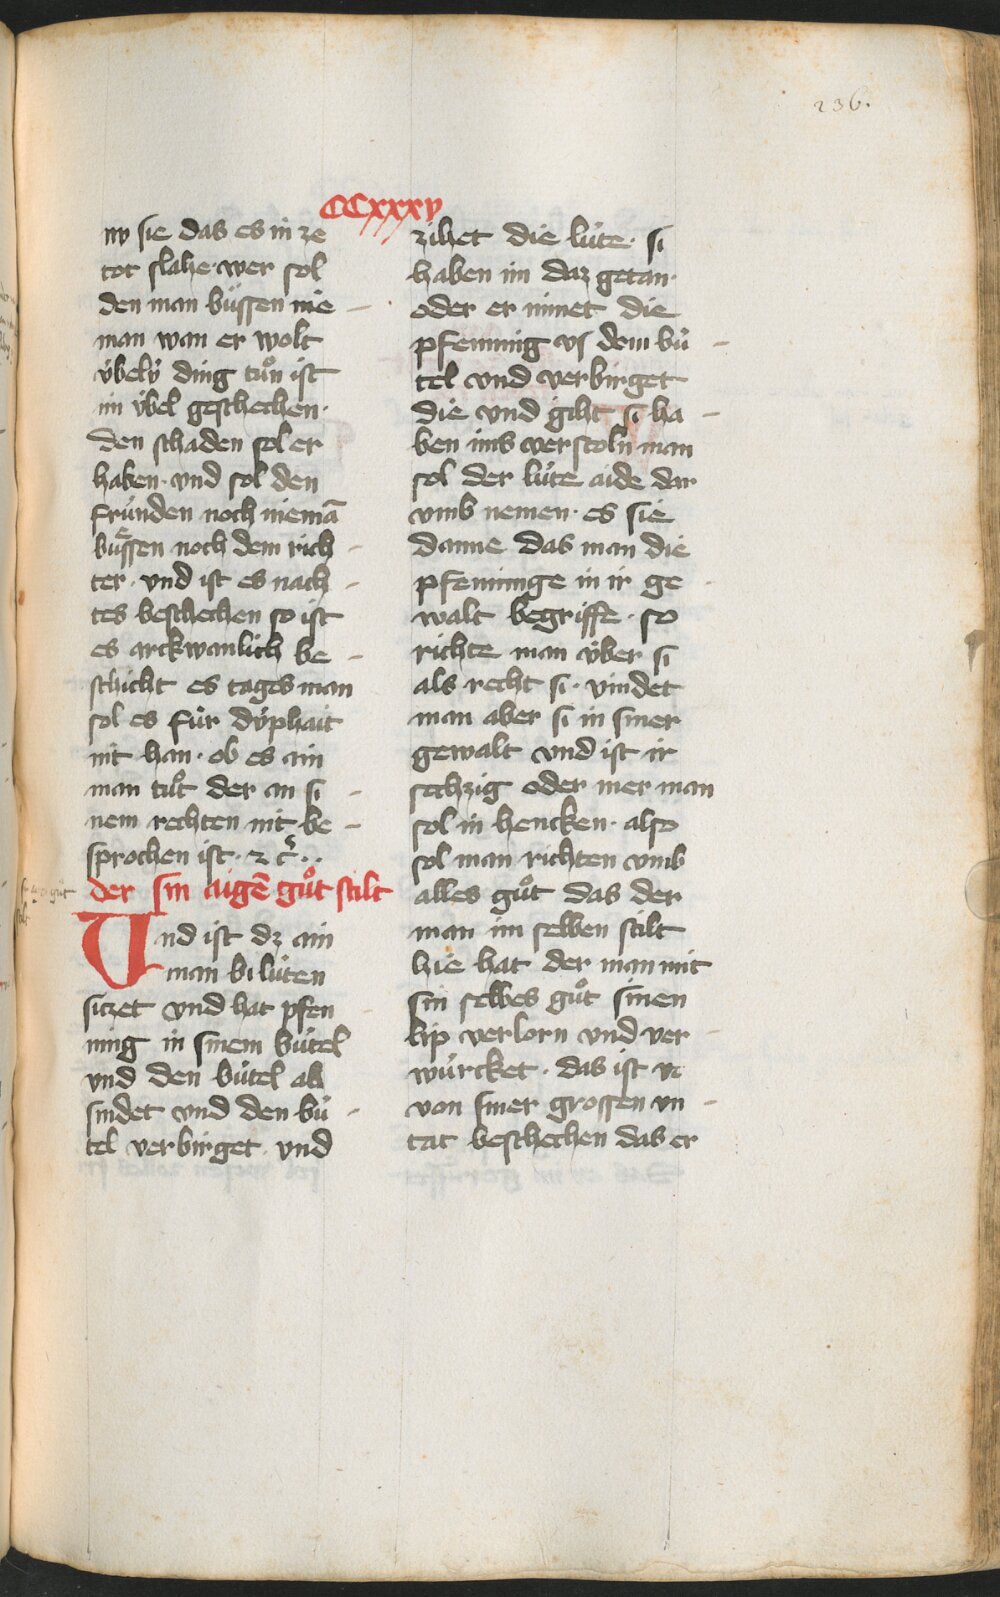 236.
CCxxxv
ny sie das es in ze
tot slahe · wer sol
den man büssen nie
man wan er wolt
ÿbelÿ ding tuͦn ist
im ÿbel geschechen ·
den schaden sol er
haben · vnd sol den
fründen noch niemā
buͤssen noch dem rich
ter · vnd ist es nach
tes beschechen so ist
es arckwanlich be
schicht es tages man
sol es für dÿphait
nit han · ob es ain
man tuͦt der an si
nem rechten nit be
sprochen ist · ⁊ c̃ ·
der sin aigē guͦt stilt
Vnd ist dz ain
man bi lüten
siczet vnd hat pfen
ning in sinem bütel
vnd den bütel ab
sindet vnd den bü
tel verbirget · vnd
zihet die lüte · si
haben im daz getan ·
oder er nimet die
pfenning vs dem bü
tel vnd verbirget
die vnd giht si ha
ben ims verstoln man
sol der lüte aide dar
vmb nemen · es sie
danne das man die
pfenninge in ir ge
walt begriffe · so
richte man ÿber si
als recht si · vindet
man aber si in siner
gewalt vnd ist ir
sechzig oder mer man
sol in hencken · also
sol man richten vmb
alles guͦt das der
man im selben stilt
hie hat der man mit
sin selbes guͦt sinen
lip verlorn vnd ver
würcket · das ist
von siner grossen vn
tat beschechen das er